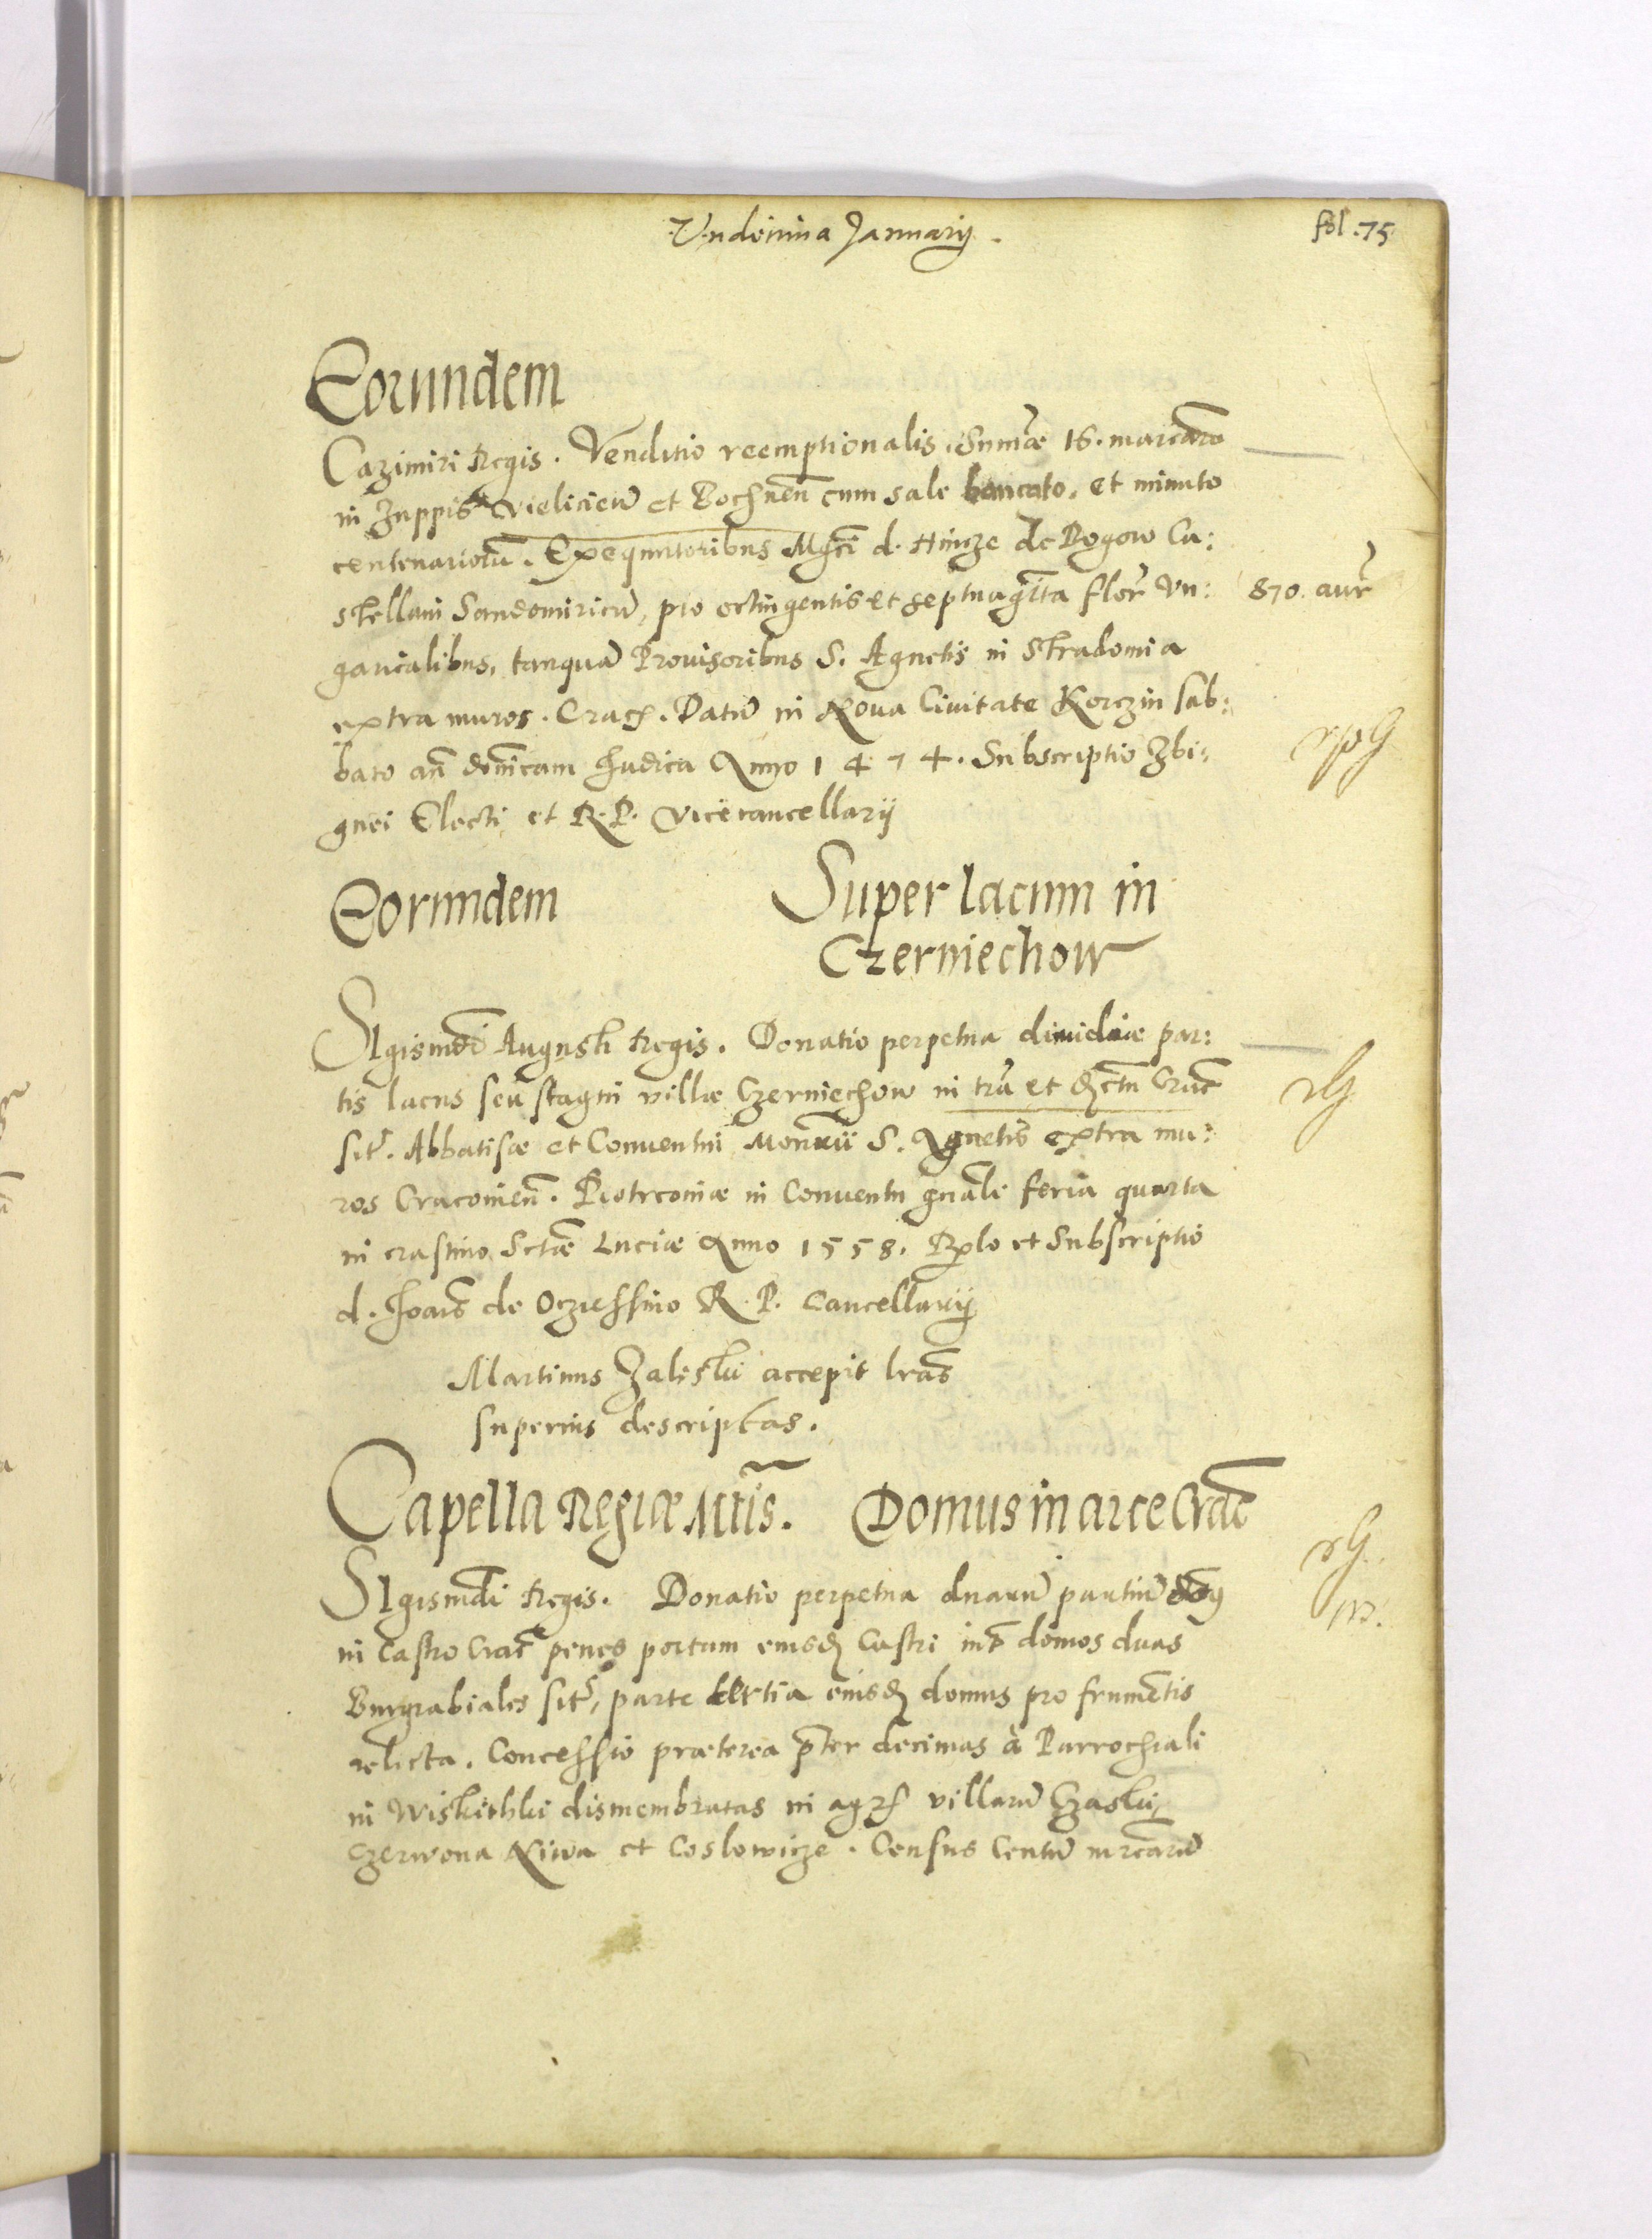 Vndecima Januarij.
fol. 75
Eorundem
Cazimiri Regis. Venditio reemptionalis Sum̃æ 16. marcarũ
in Zuppis Vielicień et Bochneñ cum sale bancato, et minuto
centenariorũ. Exequutoribus Mgĉi d. Hincze de Rogow Ca:
stellani Sandomirień, pro octingentis et septuagĩta flor̃ Vn:
870. aur̃
garicalibus, tanquã Prouisoribus S. Agnetis in Stradomia
extra muros. Crac̃. Datũ in Noua Ciuitate Korczin sab:
bato añ doñicam Judica Anno 1474. Subscriptio Zbi:
gnei Electi et R. P. Vicecancellarij
Eorundem
Super lacum in
Czerniechow
SIgismũdi Augusti Regis. Donatio perpetua dimidiæ par:
tis lacus seu stagni villæ Czerniechow in tr̃a et dr̃ctu Crac̃
sit̃. Abbatisæ et Conuentui Monr̃ij S. Agnetis extra mu:
ros Cracouień. Piotrcouiæ in Conuentu gñali feria quarta
in crastino Sctæ Luciæ Anno 1558. Rlo et Subscriptio
d. Joañis de Ocziessino R. P. Cancellarij
Martinus Zaleski accepit lr̃as
superius descriptas.
Capella Regiæ Mtĩs. Domus in arce Crac̃
SIgismũdi Regis. Donatio perpetua duarũ partiũ domꝰ
in Castro Crac̃ penes portam eiusd̃ Castri int̃ domos duas
Burgrabiales sit̃, parte tertia eiusd̃ domus pro frumẽtis
relicta. Concessio præterea p̃ter decimas à Parrochiali
in Wiskithki dismembratas in agrꝭ villarũ Czaski,
Czerwona Niwa et Coslowicze. Census Centũ mr̃carũ